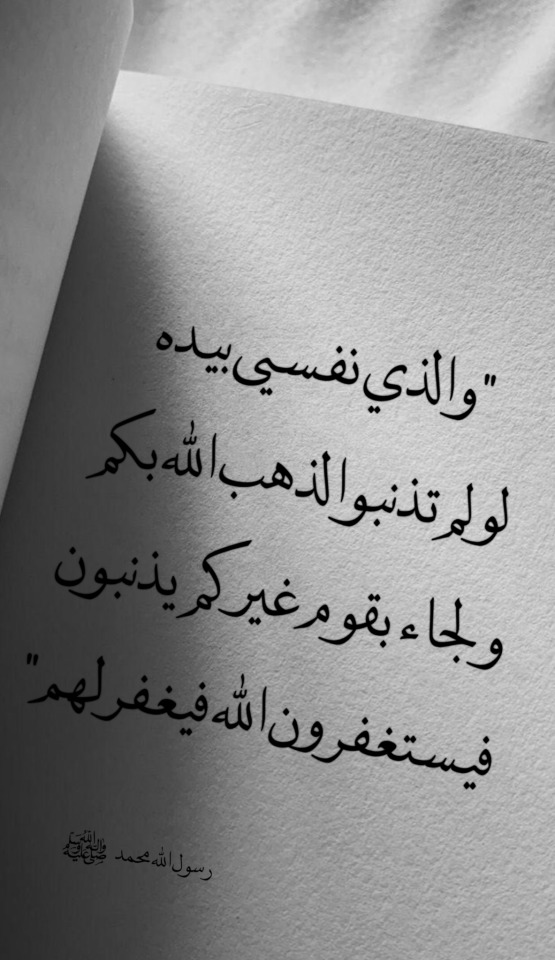 "والذي نفسي بيده
لو لم تذنبوا لذهب الله بكم
ولجاء بقوم غيركم يذنبون
فيستغفرون الله فيغفر لهم"
رسول الله محمد ﷺ